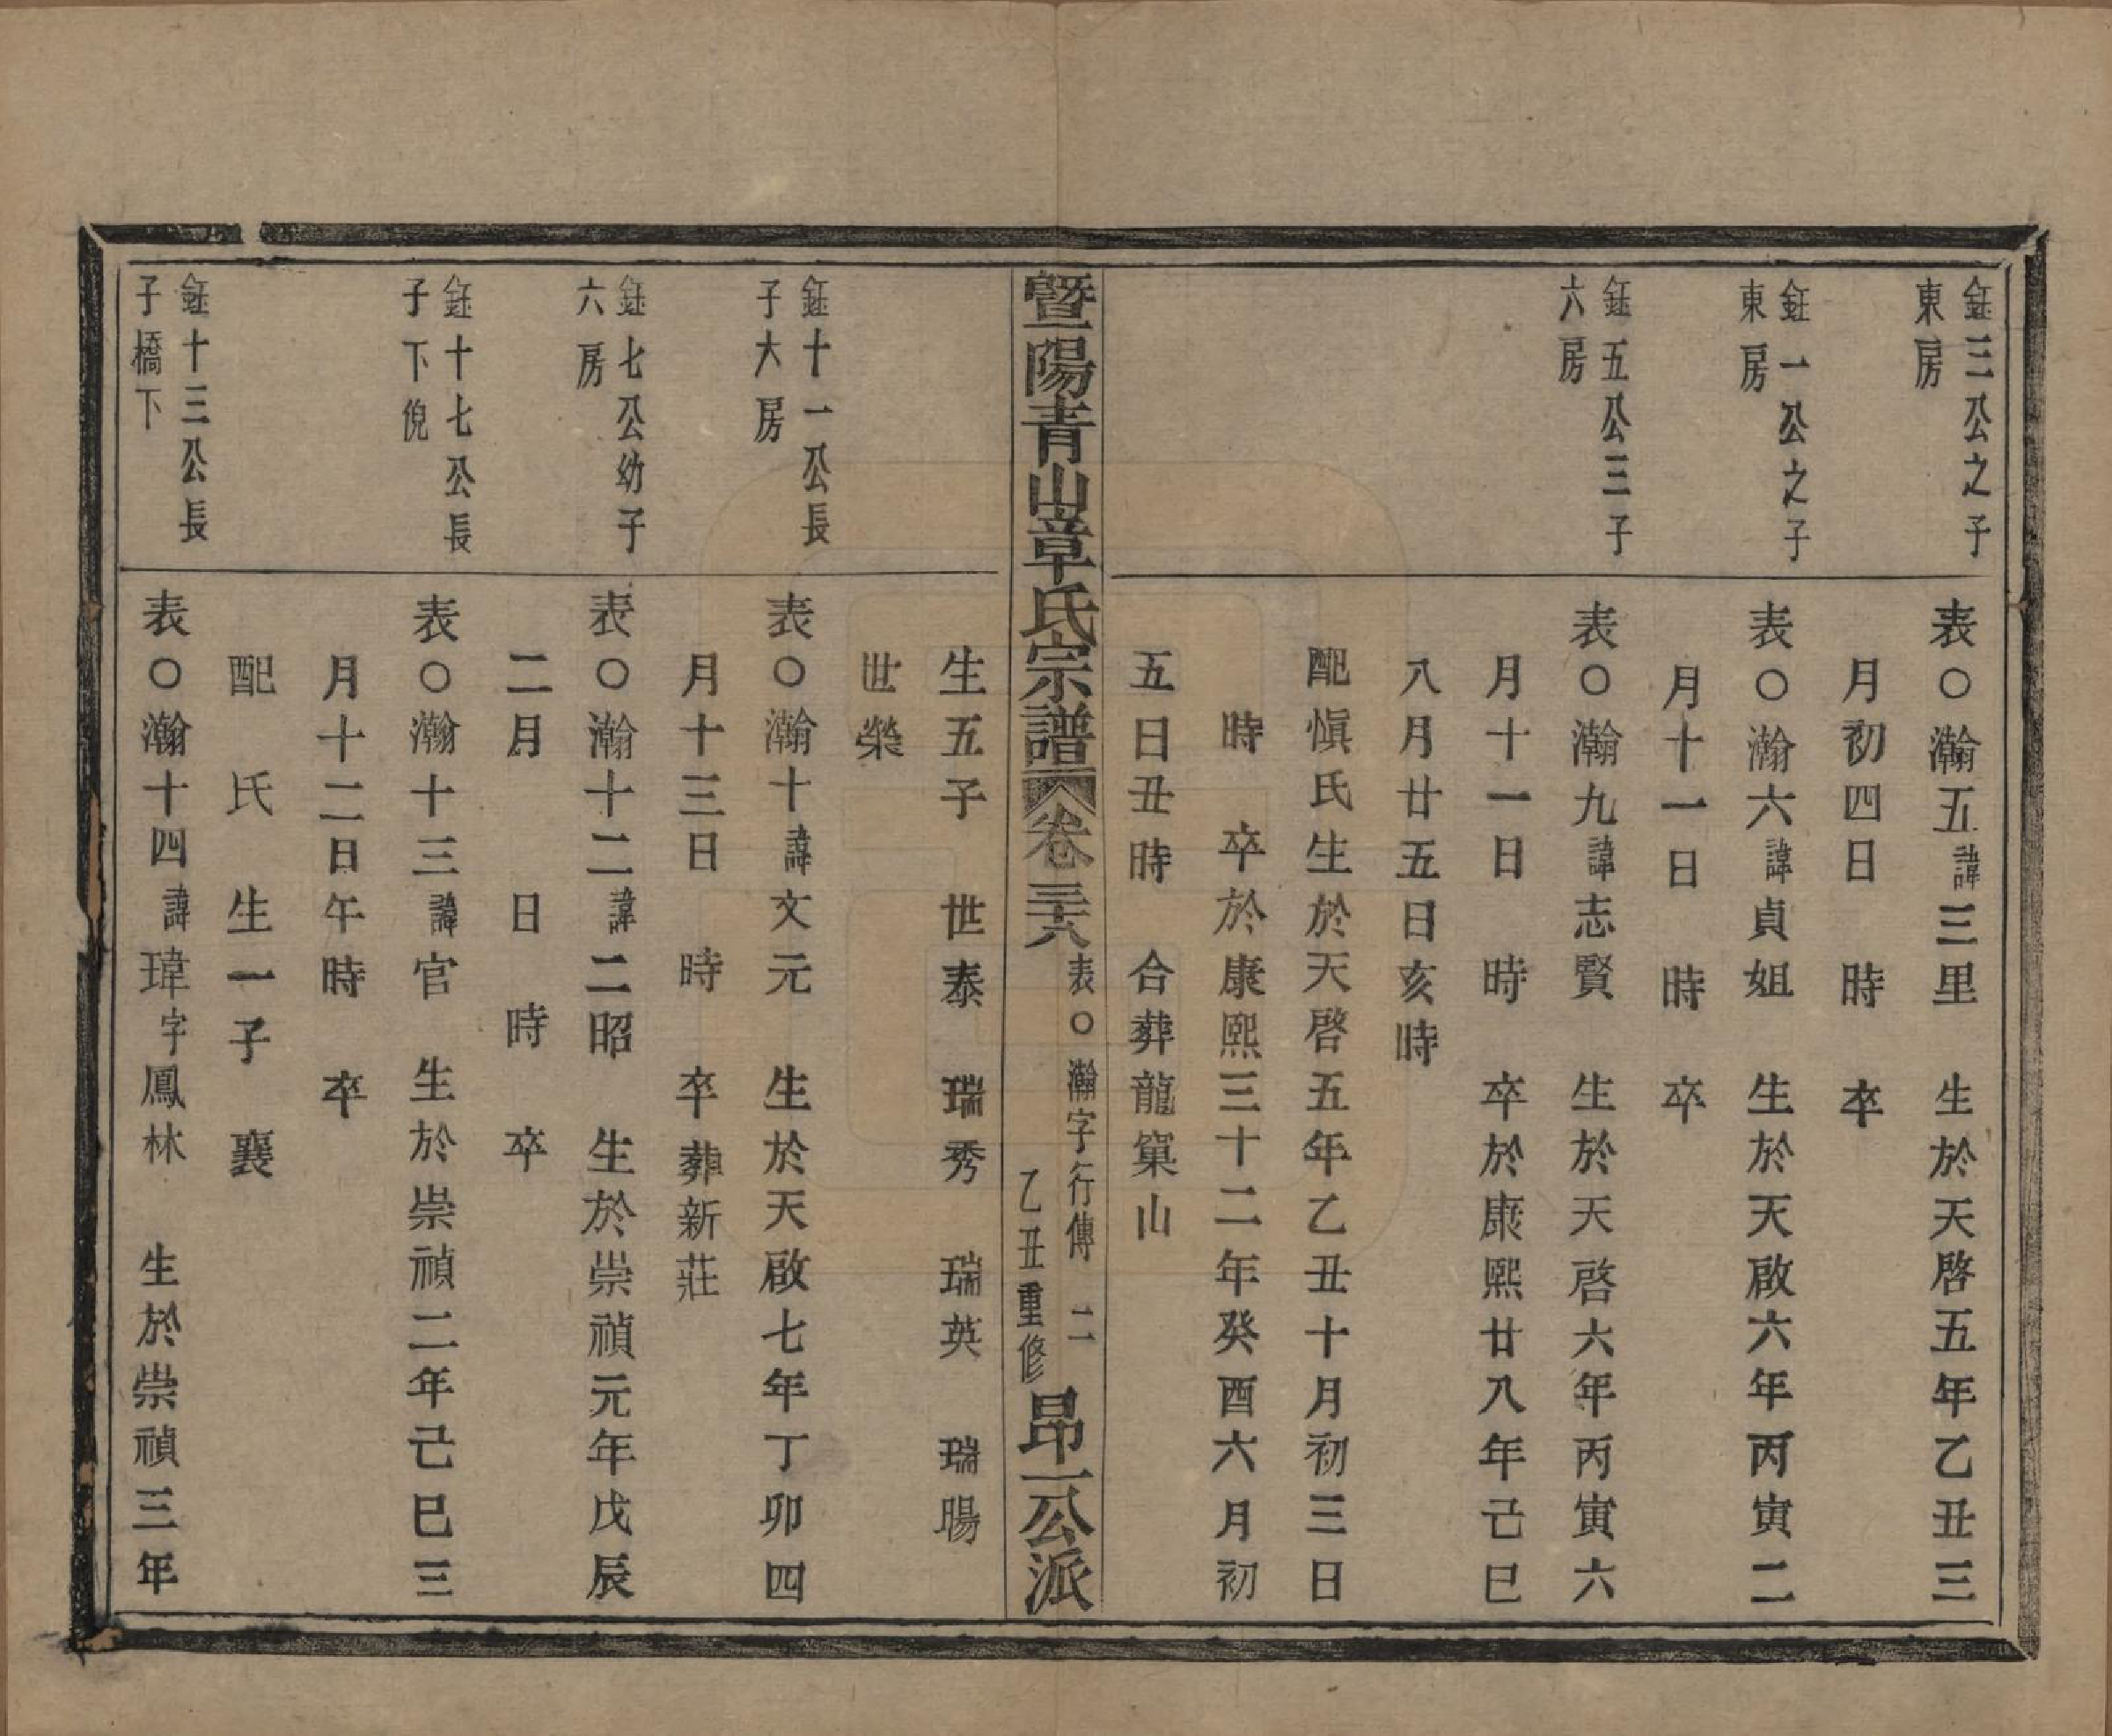 鈺三公之子
東房
表○瀚五諱三里　生於天啓五年乙丑三
月初四日　時　卒
鈺一公之子
東房
表○瀚六諱貞姐　生於天啟六年丙寅二
月十一日　時　卒
鈺五公三子
六房
表○瀚九諱志賢　生於天啓六年丙寅六
月十一日　時　卒於康熙廿八年己巳
八月廿五日亥時
配愼氏生於天啓五年乙丑十月初三日
時　卒於康熙三十二年癸酉六月初
五日丑時　合葬龍窠山
暨陽青山章氏宗譜　卷三六　表○瀚字行傳　二　乙丑重修　昂一公派
生五子　世泰　瑞秀　瑞英　瑞暘
世榮
鈺十一公長
子大房
表○瀚十諱文元　生於天啟七年丁卯四
月十三日　時　卒葬新莊
鈺七公幼子
六房
表○瀚十二諱二昭　生於崇禎元年戊辰
二月　日　時　卒
鈺十七公長
子下倪
表○瀚十三諱官　生於崇禎二年己巳三
月十二日午時　卒
配　氏　生一子　襄
鈺十三公長
子橋下
表○瀚十四諱瑋字鳳林　生於崇禎三年